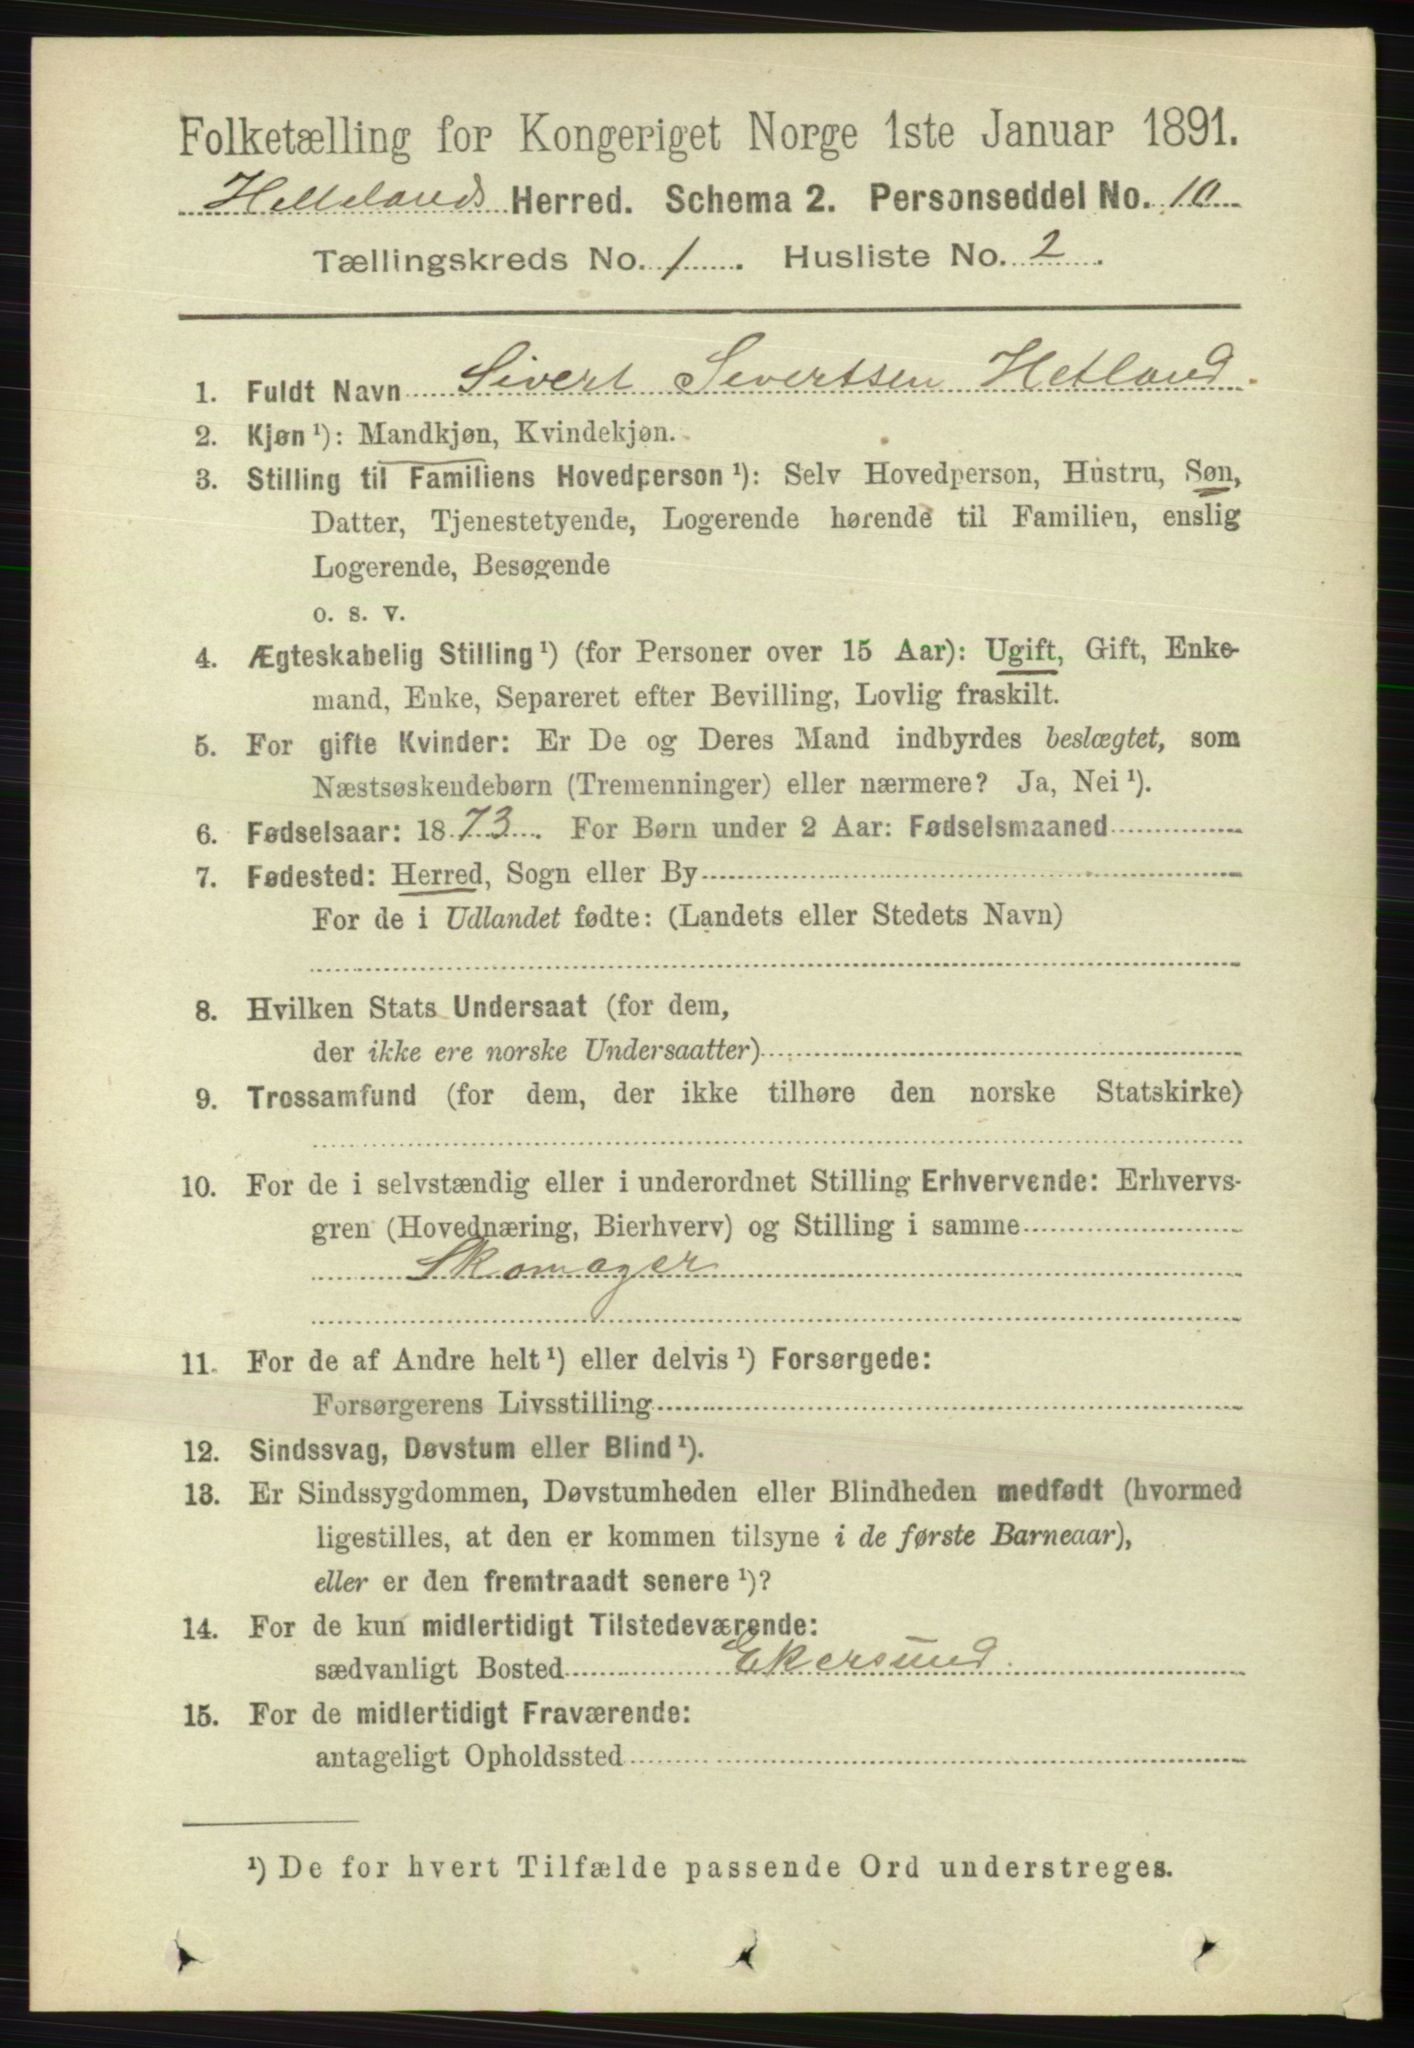 Folketælling for Kongeriget Norge 1ste Januar 1891.
Hellelands Herred. Schema 2. Personseddel No. 10
Tællingskreds No. 1. Husliste No. 2.
1. Fuldt Navn Sivert Sivertsen Hetland.
2. Kjøn ¹): Mandkjøn, Kvindekjøn.
3. Stilling til Familiens Hovedperson ¹): Selv Hovedperson, Hustru, Søn,
Datter, Tjenestetyende, Logerende hørende til Familien, enslig
Logerende, Besøgende
o. s. v.
4. Ægteskabelig Stilling ¹) (for Personer over 15 Aar): Ugift, Gift, Enke-
mand, Enke, Separeret efter Bevilling, Lovlig fraskilt.
5. For gifte Kvinder: Er De og Deres Mand indbyrdes beslægtet, som
Næstsøskendebørn (Tremenninger) eller nærmere? Ja, Nei ¹).
6. Fødselsaar: 1873. For Børn under 2 Aar: Fødselsmaaned
7. Fødested: Herred, Sogn eller By
For de i Udlandet fødte: (Landets eller Stedets Navn)
8. Hvilken Stats Undersaat (for dem,
der ikke ere norske Undersaatter)
9. Trossamfund (for dem, der ikke tilhøre den norske Statskirke)
10. For de i selvstændig eller i underordnet Stilling Erhvervende: Erhvervs-
gren (Hovednæring, Bierhverv) og Stilling i samme
Skomager
11. For de af Andre helt ¹) eller delvis ¹) Forsørgede:
Forsørgerens Livsstilling
12. Sindssvag, Døvstum eller Blind ¹).
13. Er Sindssygdommen, Døvstumheden eller Blindheden medfødt (hvormed
ligestilles, at den er kommen tilsyne i de første Barneaar),
eller er den fremtraadt senere ¹)?
14. For de kun midlertidigt Tilstedeværende:
sædvanligt Bosted Ekersund.
15. For de midlertidigt Fraværende:
antageligt Opholdssted
¹) De for hvert Tilfælde passende Ord understreges.